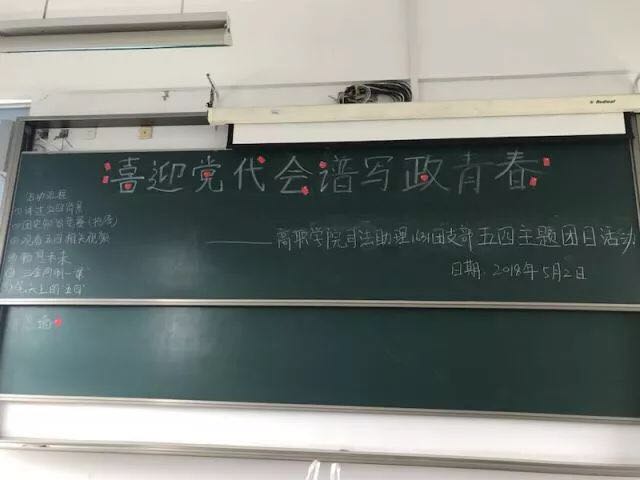 Redleaf
喜迎党代会谱写政青春
——高职学院司法助理1631团支部五四主题团日活动
日期:2018年5月2日
活动流程
①讲述五四背景
②团史知识竞赛(抢答)
③观看五四相关视频
④畅想未来
⑤三会两制一课